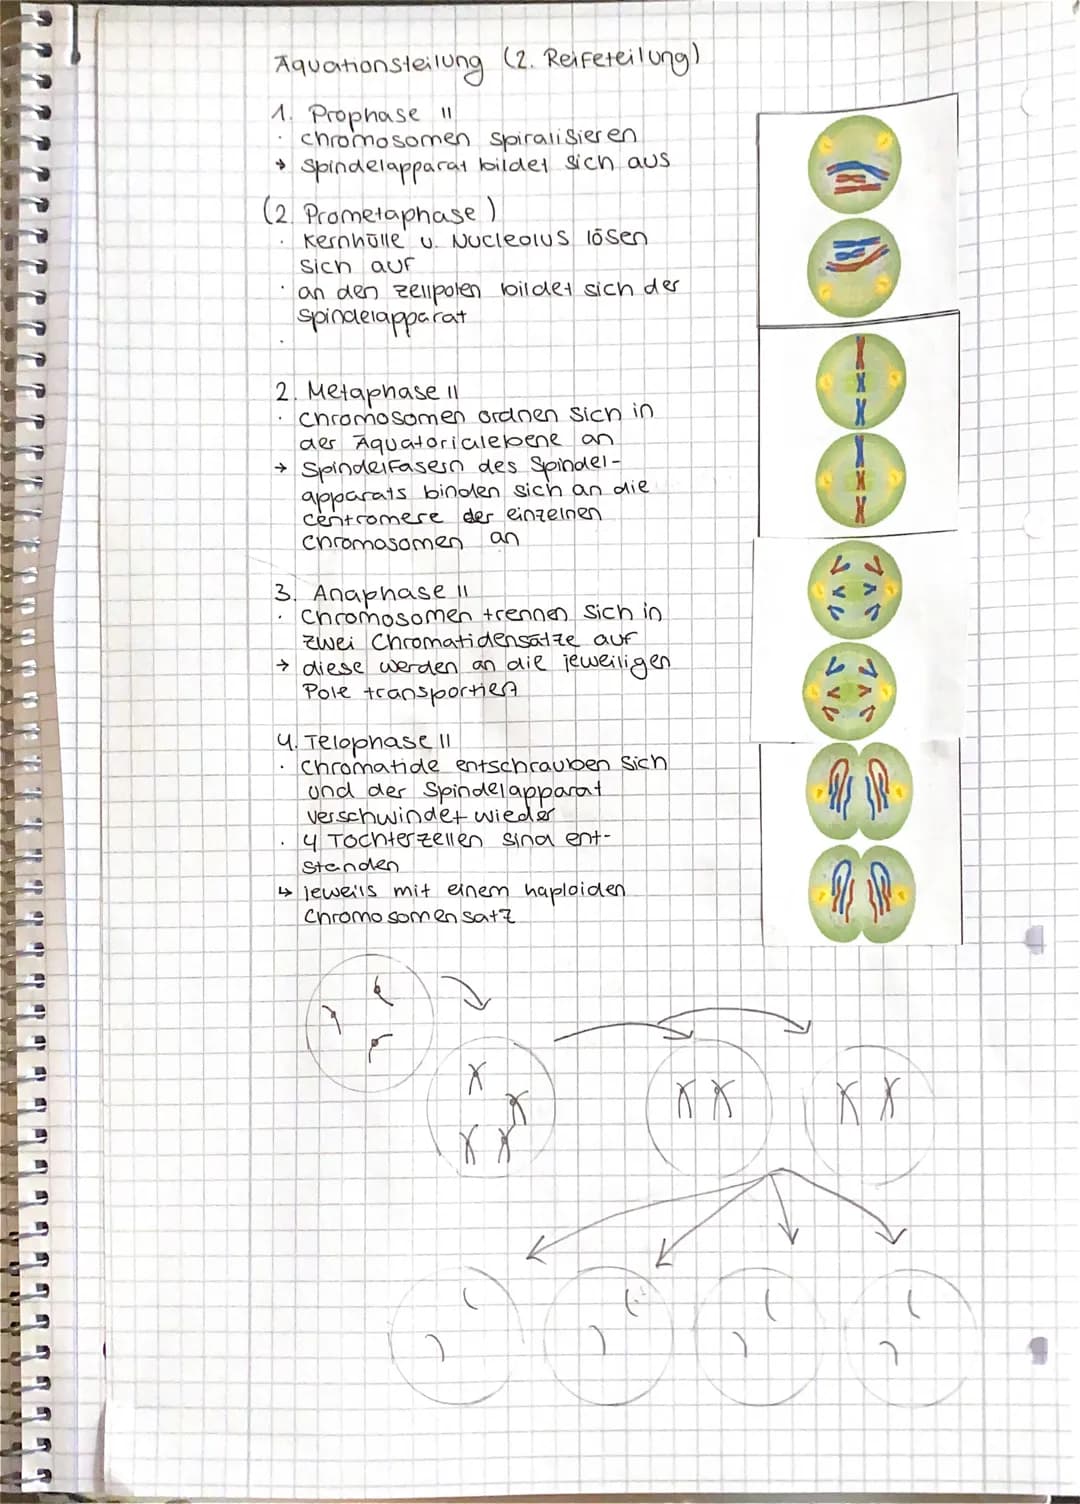 Äquationsteilung (2. Reifeteilung)
1. Prophase II
· Chromosomen spiralisieren
→ Spindelapparat bildet sich aus
(2. Prometaphase)
· Kernhülle u. Nucleolus lösen
sich auf
· an den Zellpolen bildet sich der
Spindelapparat
·
2. Metaphase II
· Chromosomen ordnen sich in
der Äquatorialebene an
→ Spindelfasern des Spindel-
apparats binden sich an die
Centromere der einzelnen
Chromosomen an
3. Anaphase II
· Chromosomen trennen sich in
zwei Chromatidensätze auf
→ diese werden an die jeweiligen
Pole transportiert
4. Telophase II
· Chromatide entschrauben sich
und der Spindelapparat
verschwindet wieder
· 4 Tochterzellen sind ent-
standen
↳ jeweils mit einem haploiden
Chromosomensatz